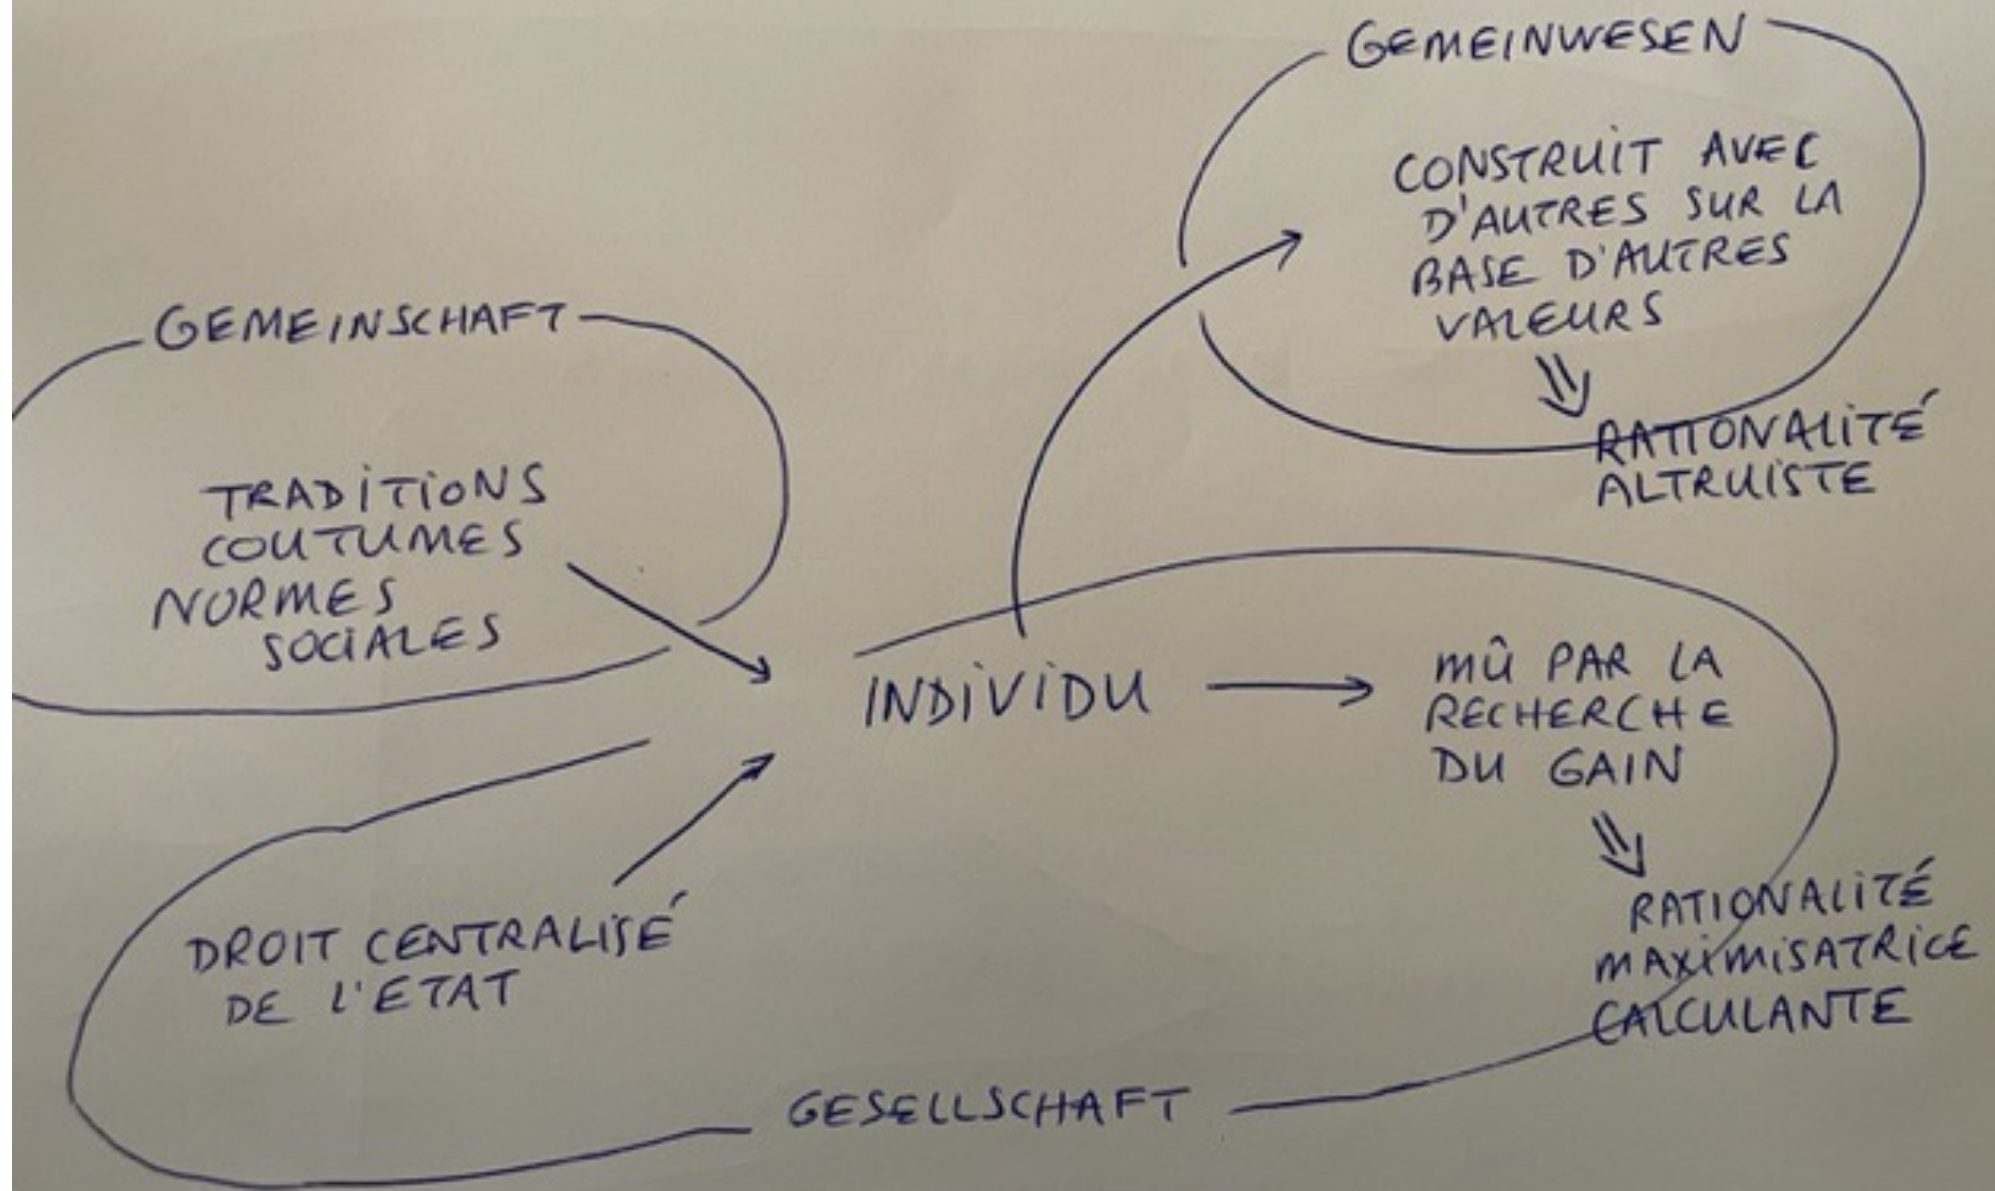 GEMEINWESEN
CONSTRUIT AVEC
D'AUTRES SUR LA
BASE D'AUTRES
VALEURS
RATIONALITÉ
ALTRUISTE
GEMEINSCHAFT
TRADITIONS
COUTUMES
NORMES
SOCIALES
INDIVIDU
MÛ PAR LA
RECHERCHE
DU GAIN
RATIONALITÉ
MAXIMISATRICE
CALCULANTE
DROIT CENTRALISÉ
DE L'ETAT
GESELLSCHAFT